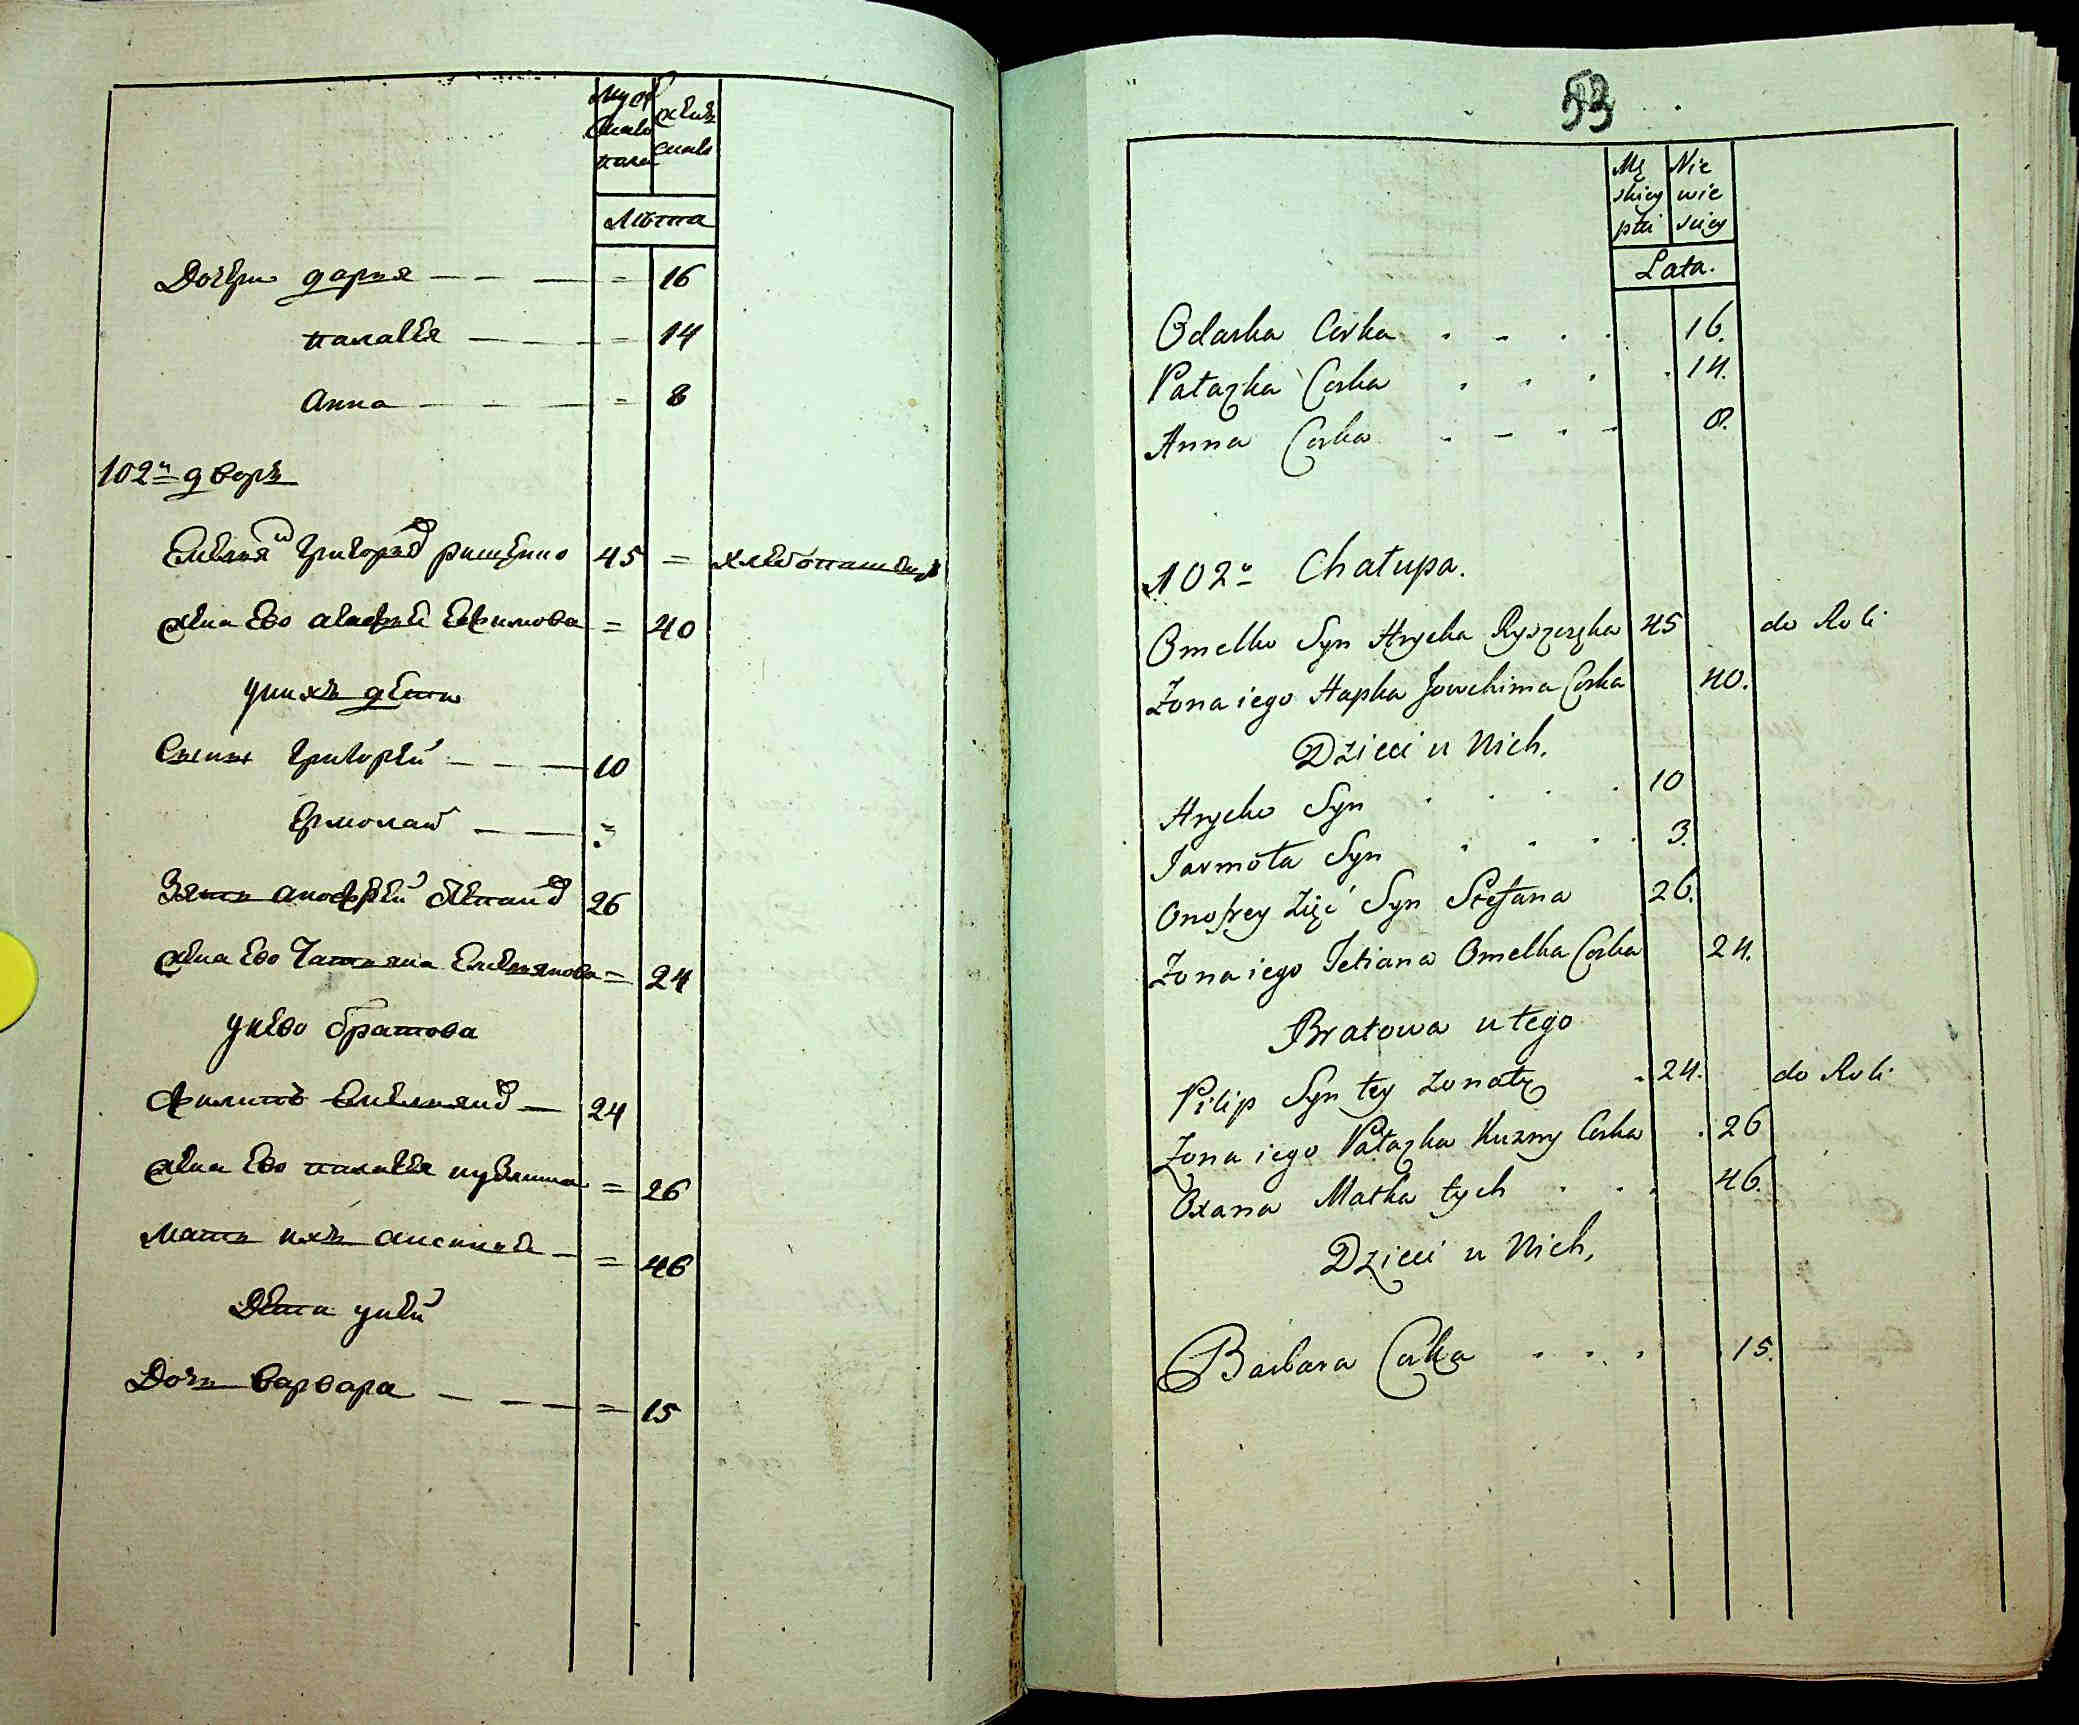 Мус
каго
пола
женъ
скаго
Лѣта
Дочери дарья — — — = 16
палагея — — — = 14
Анна — — — = 8
102й дворъ
Емельян Григорьев рищенко 45 = хлебопашецъ
Жена Ево агафия Ефимова = 40
уних дети
Сынъ григорей — — — 10
Ермолай — — 3
Зять анофрей степанов 26
Жена Ево Татьяна Емельянова = 24
унево братова
Филипъ Емельянов — 24
Жена Ево палагея кузмина = 26
Мать ихъ аксиния — = 46
Дети уней
Дочь варвара — — — = 15
53
Mę
skiey
płci
Nie
wie
sciey
Lata.
Odarka Corka . . . . 16.
Pałazka Corka . . . . 14.
Anna Corka . . . . 8.
102a Chałupa.
Omelko Syn Hrycka Ryszczęka 45 do Roli
Żona iego Hapka Jowchima Corka 40.
Dzieci u Nich.
Hrycko Syn . . . . 10
Jarmoła Syn . . . . 3.
Onofrey Zięć Syn Stefana 26.
Żona iego Tetiana Omelka Corka 24.
Bratowa u tego
Pilip Syn tey żonaty . 24. do Roli
Żona iego Pałazka Kuzmy Corka . 26
Oxana Matka tych . . . 46.
Dzieci u Nich,
Barbara Corka . . . . 15.